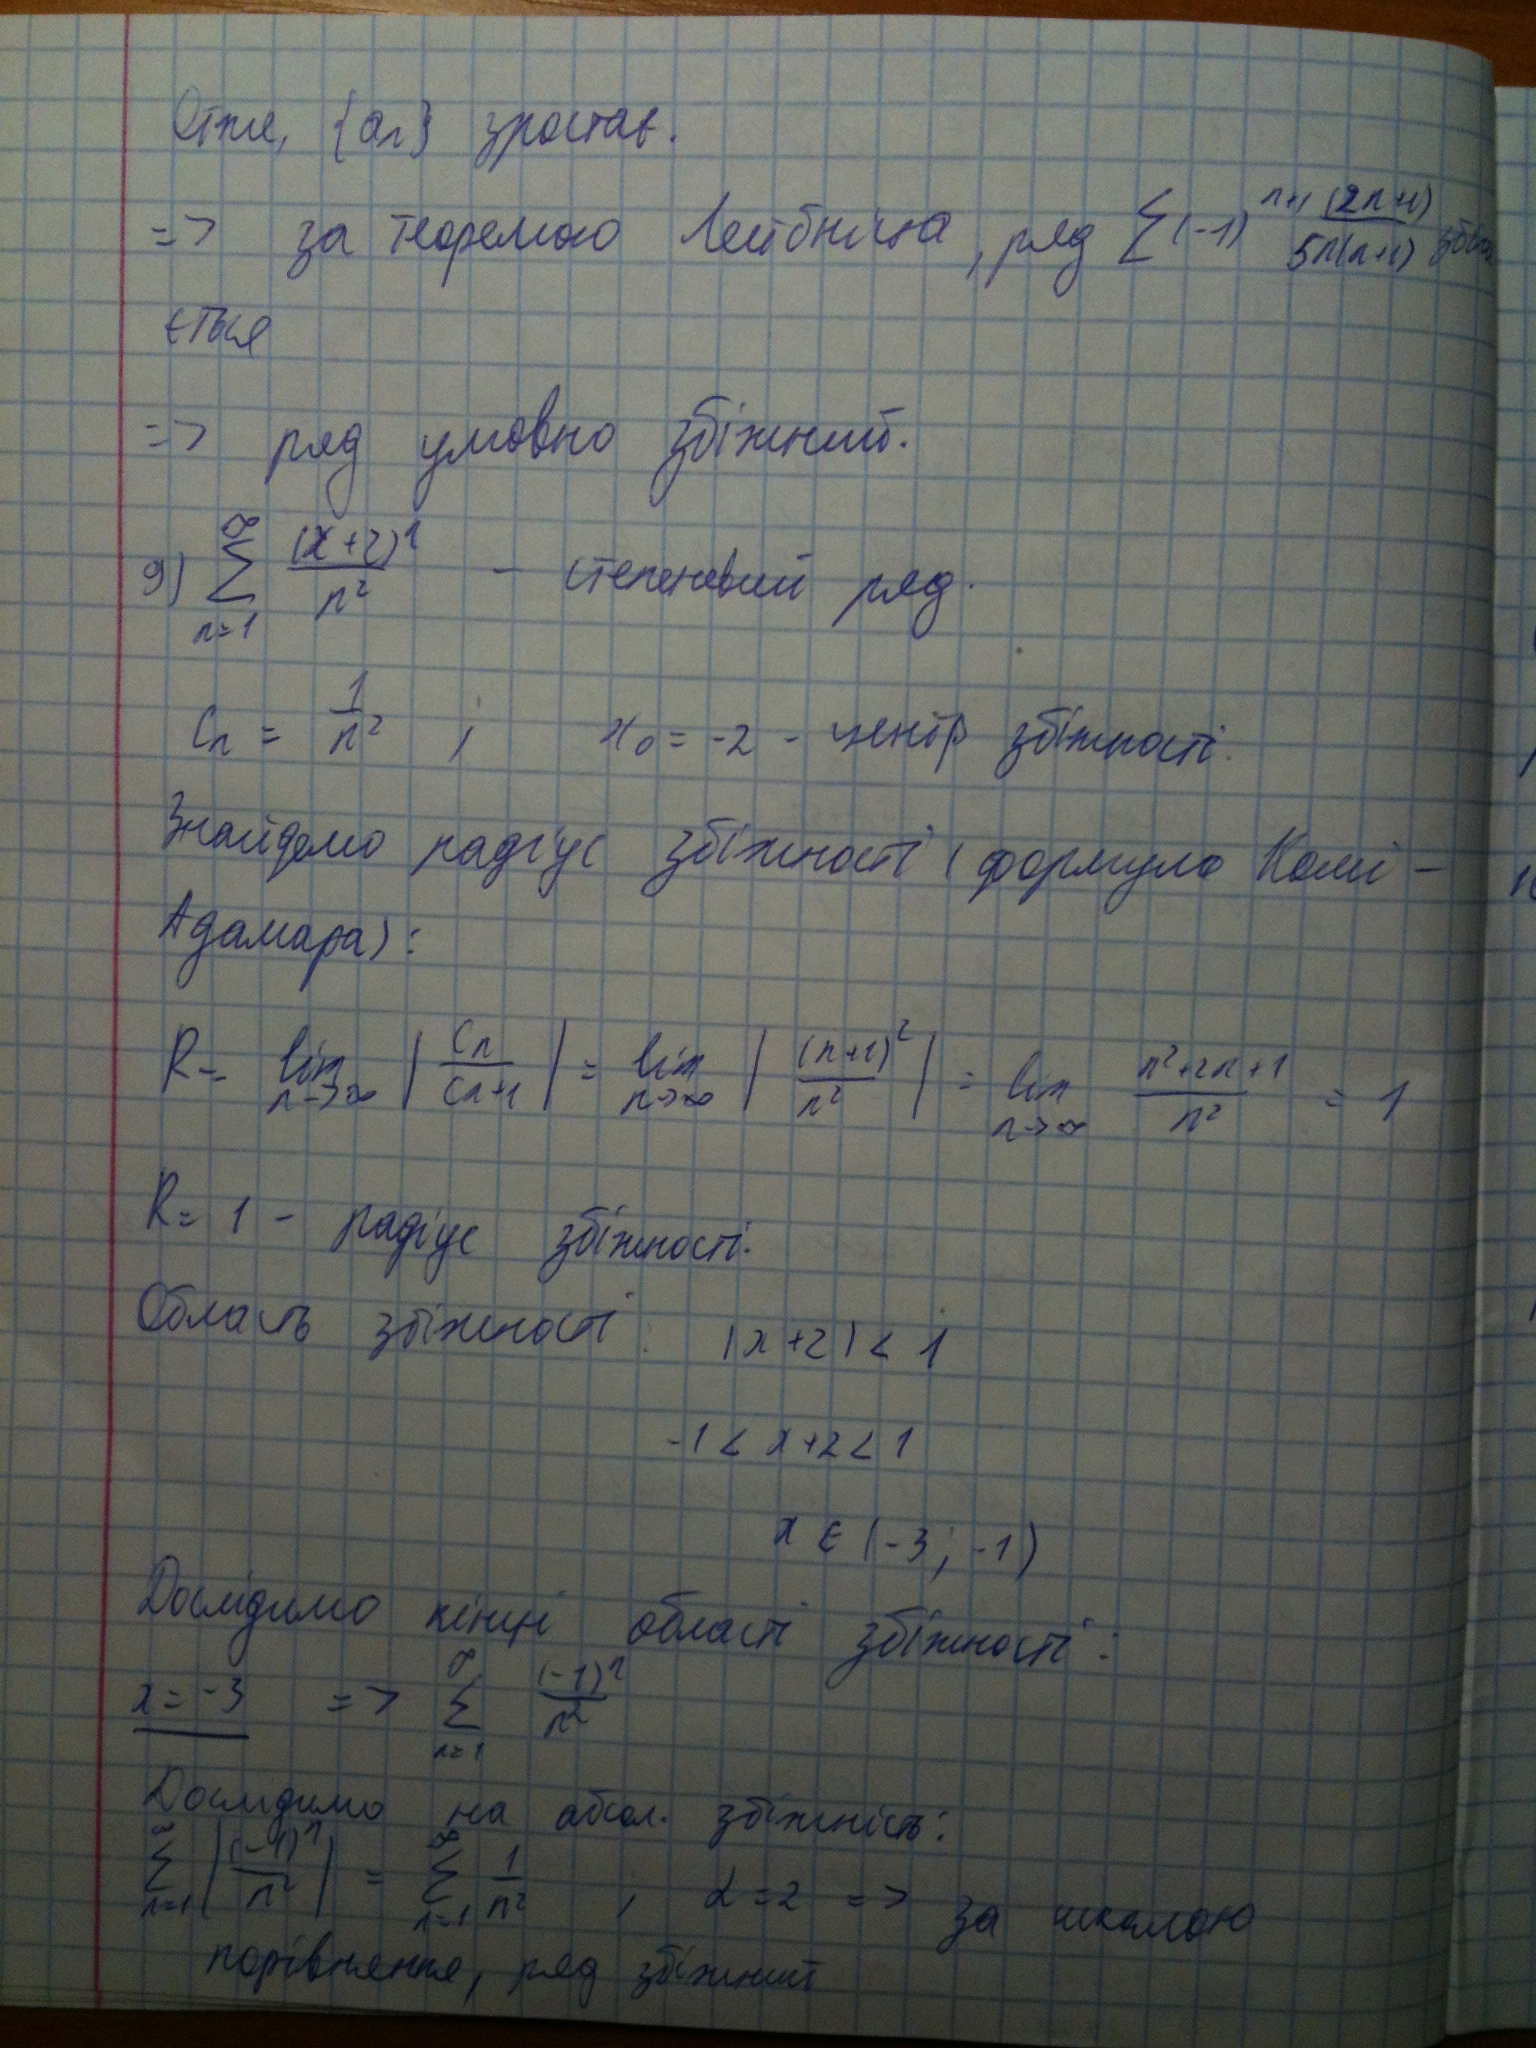 Отже, {aₙ} зростає.
=> за теоремою Лейбніца, ряд Σ(-1)ⁿ⁺¹ (2n+1)/(5n(n+1)) збіга
ється
=> ряд умовно збіжний.
9) Σ_{n=1}^{∞} (x+2)ⁿ/n² - степеневий ряд.
Cₙ = 1/n² ; x₀ = -2 - центр збіжності.
Знайдемо радіус збіжності (формула Коші -
Адамара):
R = lim_{n→∞} |Cₙ/Cₙ₊₁| = lim_{n→∞} |(n+1)²/n²| = lim_{n→∞} (n²+2n+1)/n² = 1
R = 1 - радіус збіжності.
Область збіжності: |x+2| < 1
-1 < x+2 < 1
x ∈ (-3; -1)
Дослідимо кінці області збіжності:
x = -3 => Σ_{n=1}^{∞} (-1)ⁿ/n²
Дослідимо на абсол. збіжність:
Σ_{n=1}^{∞} |(-1)ⁿ/n²| = Σ_{n=1}^{∞} 1/n² , α = 2 => за шкалою
порівняння, ряд збіжний